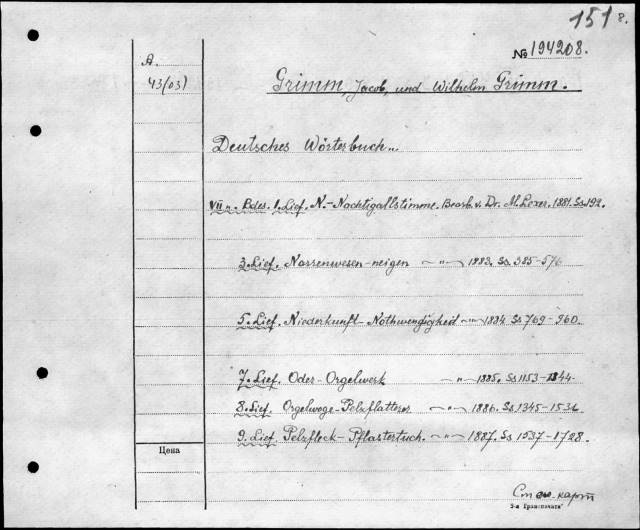 151 8.
№ 194208.
A.
43(03)
Grimm, Jacob, und Wilhelm Grimm.
Deutsches Wörterbuch...
VII.. Bdes. 1. Lief. N.-Nachtigallstimme. Bearb. v. Dr. M. Lexer. 1881. Ss. 192.
3. Lief. Narrenwesen-neigen —"— 1883. Ss. 385-576
5. Lief. Niederkunft-Nothwendigkeit —"— 1884. Ss 769-960.
7. Lief. Oder-Orgelwerk —"— 1885. Ss 1153-1344.
8. Lief. Orgelwege-Pelzflatterer —"— 1886. Ss. 1345-1536
9. Lief. Pelzfleck-Pflastertuch. —"— 1887. Ss 1537-1728.
Цена
См. сл. карт